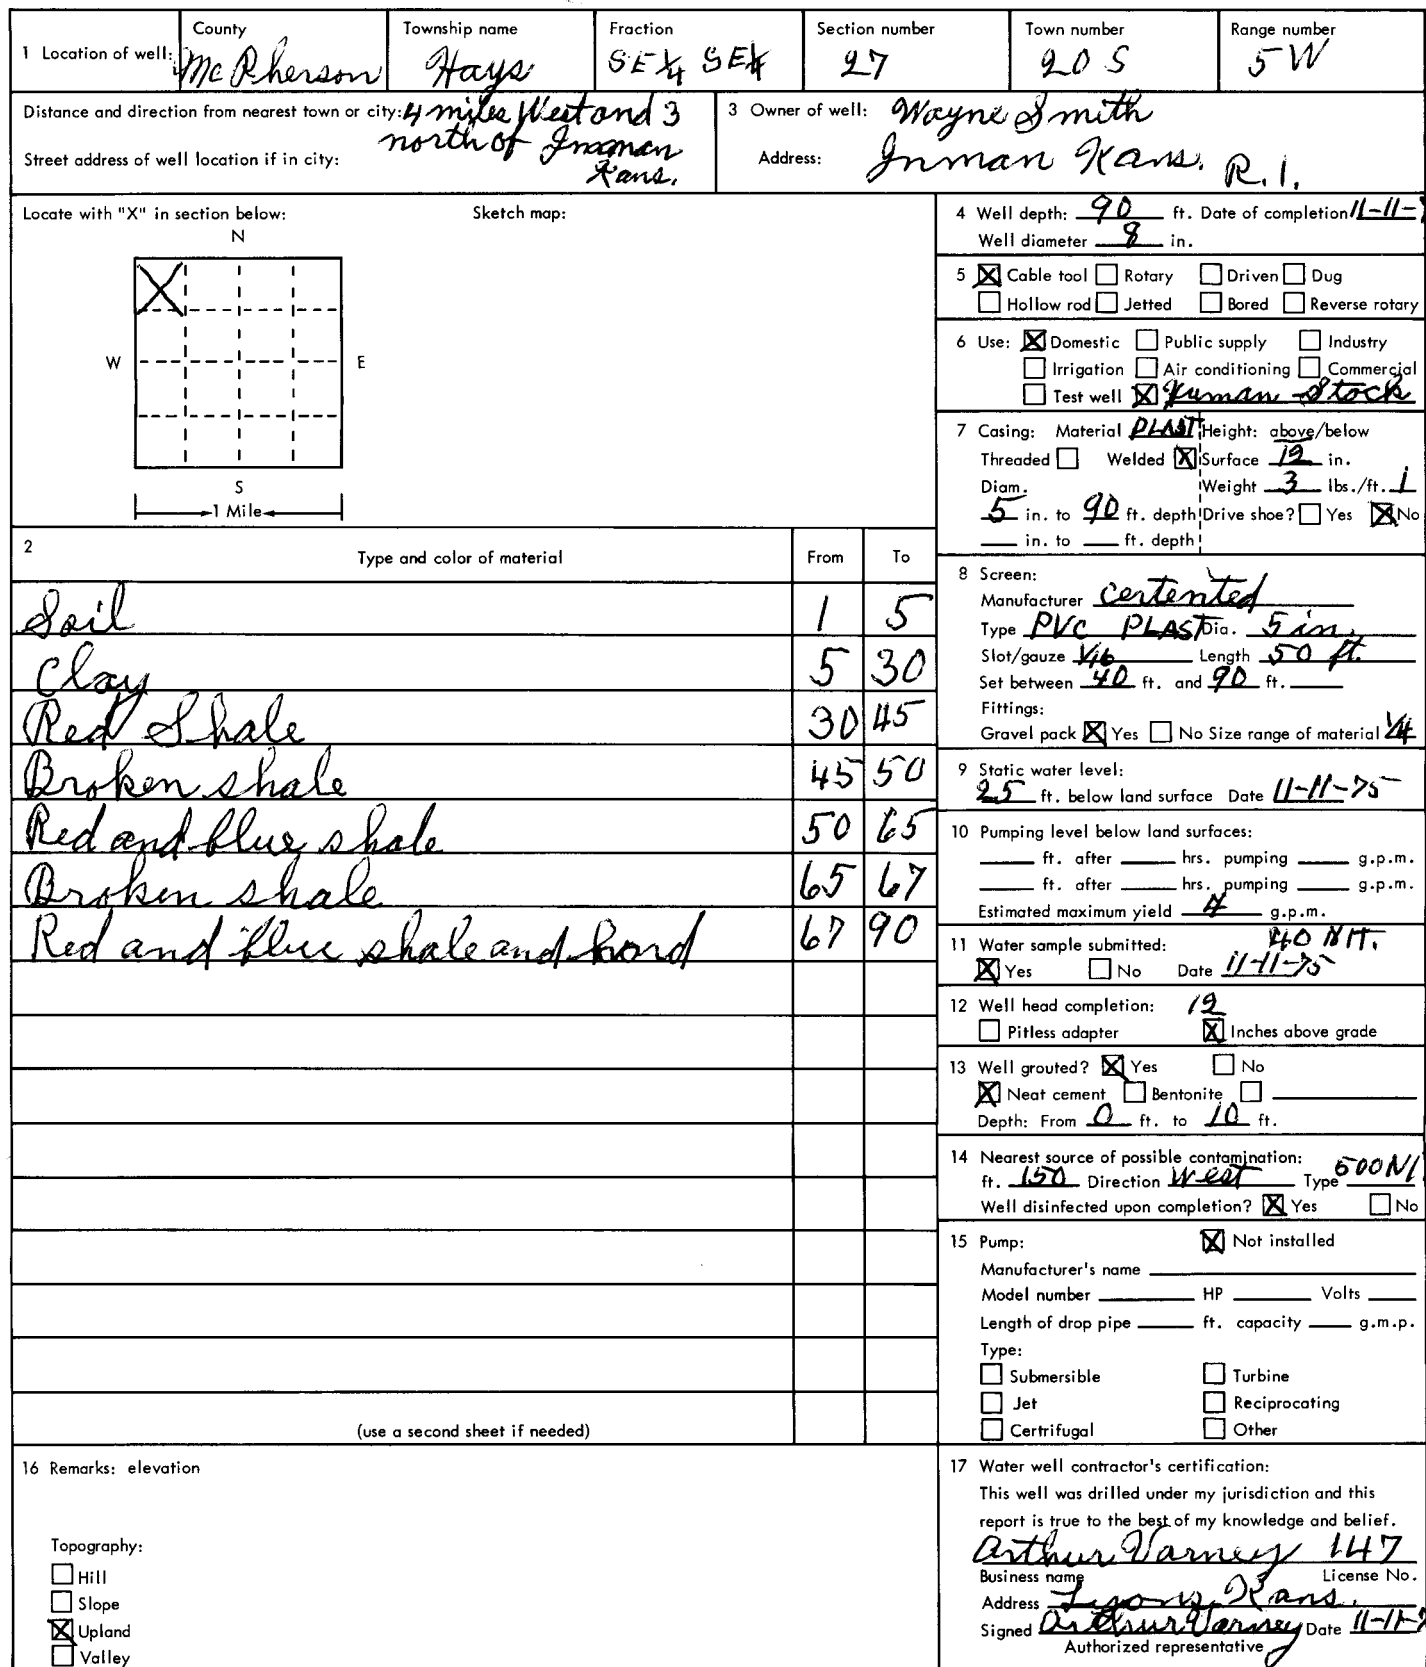 1 Location of well: County McPherson Township name Hays Fraction SE¼ SE¼ Section number 27 Town number 20 S Range number 5 W
Distance and direction from nearest town or city: 4 miles West and 3
north of Inman
Kans.
Street address of well location if in city:
3 Owner of well: Wayne Smith
Address: Inman Kans. R. 1.
Locate with "X" in section below: Sketch map:
N
X
W E
S
1 Mile
2 Type and color of material From To
Soil 1 5
Clay 5 30
Red Shale 30 45
Broken shale 45 50
Red and blue shale 50 65
Broken shale 65 67
Red and blue shale and hard 67 90
(use a second sheet if needed)
4 Well depth: 90 ft. Date of completion 11-11-
Well diameter 8 in.
5 X Cable tool Rotary Driven Dug
Hollow rod Jetted Bored Reverse rotary
6 Use: X Domestic Public supply Industry
Irrigation Air conditioning Commercial
Test well X Human Stock
7 Casing: Material PLAST Height: above/below
Threaded Welded X Surface 12 in.
Diam. Weight 3 lbs./ft. 1
5 in. to 90 ft. depth Drive shoe? Yes X No
in. to ft. depth
8 Screen:
Manufacturer certented
Type PVC PLAST Dia. 5 in.
Slot/gauze 1/16 Length 50 ft.
Set between 40 ft. and 90 ft.
Fittings:
Gravel pack X Yes No Size range of material 1/4
9 Static water level:
25 ft. below land surface Date 11-11-75
10 Pumping level below land surfaces:
ft. after hrs. pumping g.p.m.
ft. after hrs. pumping g.p.m.
Estimated maximum yield 4 g.p.m.
11 Water sample submitted: 40 NIT.
X Yes No Date 11-11-75
12 Well head completion: 12
Pitless adapter X Inches above grade
13 Well grouted? X Yes No
X Neat cement Bentonite
Depth: From 0 ft. to 10 ft.
14 Nearest source of possible contamination:
ft. 150 Direction West Type
Well disinfected upon completion? X Yes No
15 Pump: X Not installed
Manufacturer's name
Model number HP Volts
Length of drop pipe ft. capacity g.m.p.
Type:
Submersible Turbine
Jet Reciprocating
Certrifugal Other
16 Remarks: elevation
Topography:
Hill
Slope
X Upland
Valley
17 Water well contractor's certification:
This well was drilled under my jurisdiction and this
report is true to the best of my knowledge and belief.
Arthur Varney 147
Business name License No.
Address Lyons, Kans.
Signed Arthur Varney Date 11-11-
Authorized representative